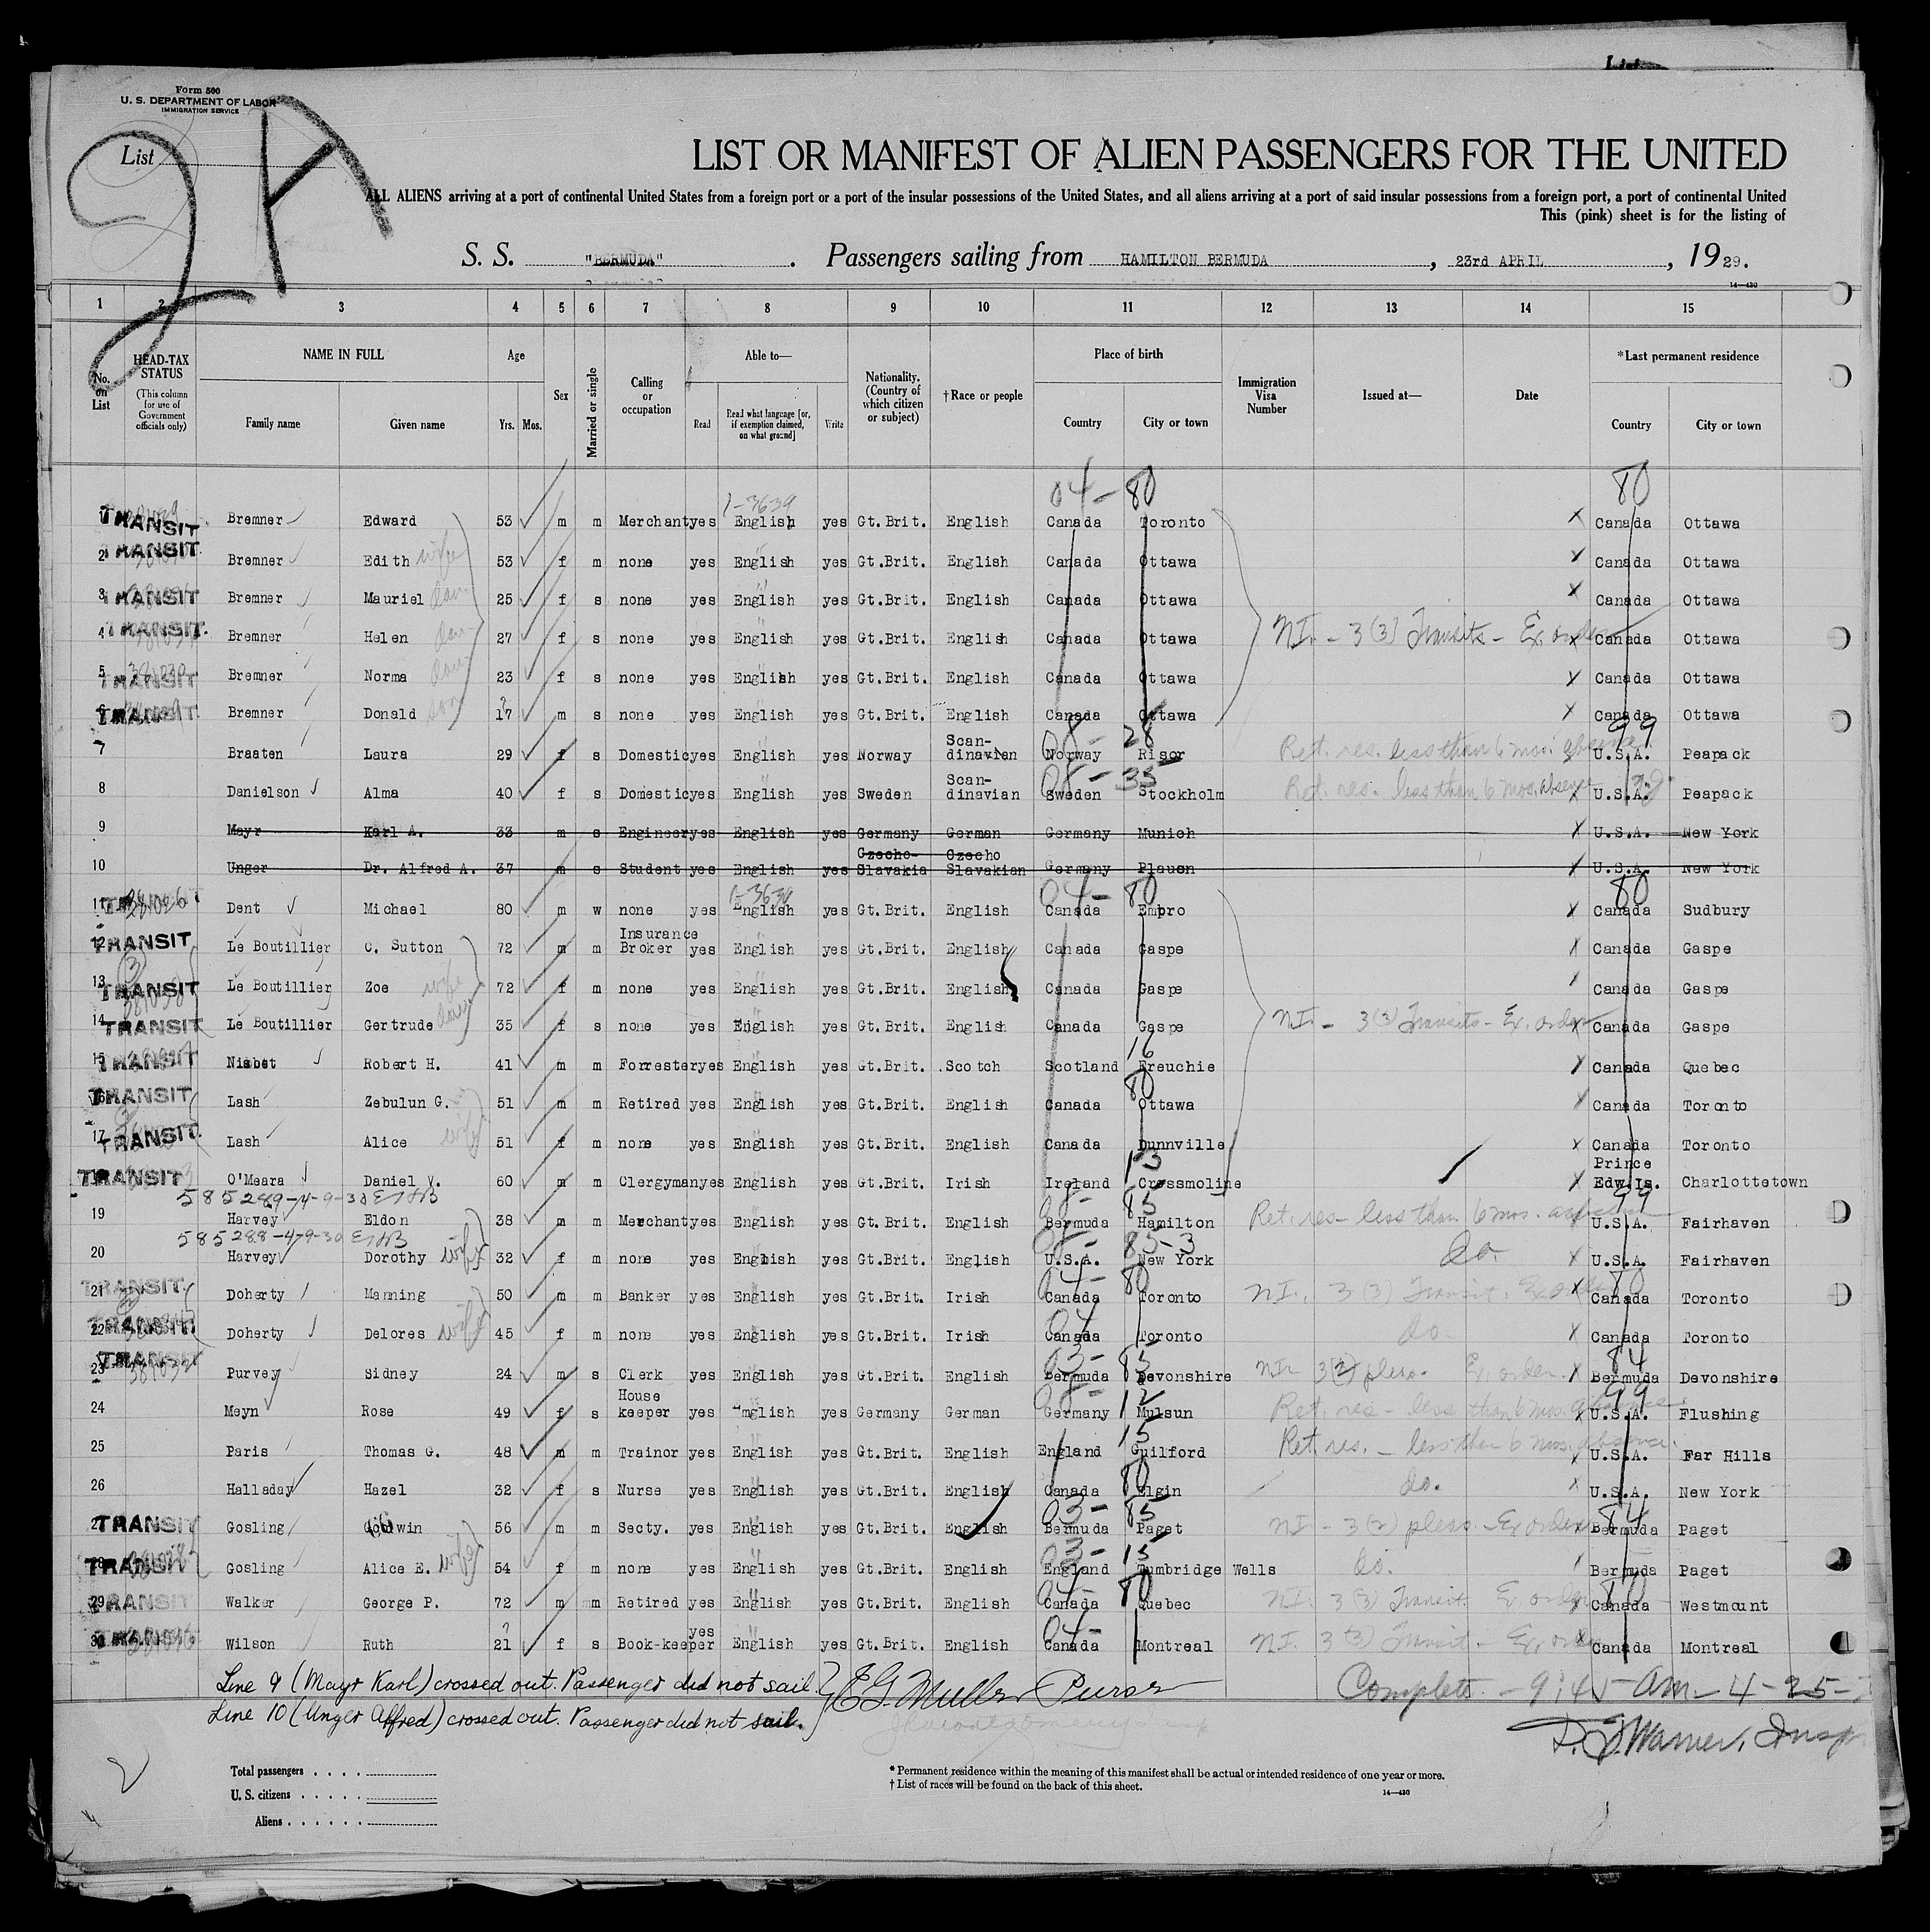 Form 500
U. S. DEPARTMENT OF LABOR
IMMIGRATION SERVICE
2A
List
LIST OR MANIFEST OF ALIEN PASSENGERS FOR THE UNITED
ALL ALIENS arriving at a port of continental United States from a foreign port or a port of the insular possessions of the United States, and all aliens arriving at a port of said insular possessions from a foreign port, a port of continental United
This (pink) sheet is for the listing of
S. S. "BERMUDA". Passengers sailing from HAMILTON BERMUDA, 23rd APRIL, 1929.
14—430
1 2 3 4 5 6 7 8 9 10 11 12 13 14 15
No. on List HEAD-TAX STATUS (This column for use of Government officials only) NAME IN FULL Family name Given name Age Yrs. Mos. Sex Married or single Calling or occupation Able to— Read Read what language [or, if exemption claimed, on what ground] Write Nationality. (Country of which citizen or subject) †Race or people Place of birth Country City or town Immigration Visa Number Issued at— Date *Last permanent residence Country City or town
1-3639 04-80 80
TRANSIT Bremner Edward 53 m m Merchant yes English yes Gt.Brit. English Canada Toronto x Canada Ottawa
2 TRANSIT Bremner Edith wife 53 f m none yes English yes Gt.Brit. English Canada Ottawa x Canada Ottawa
3 TRANSIT Bremner Mauriel dau 25 f s none yes English yes Gt.Brit. English Canada Ottawa x Canada Ottawa
4 TRANSIT Bremner Helen dau 27 f s none yes English yes Gt.Brit. English Canada Ottawa NI. - 3(3) Transits - Ex. order x Canada Ottawa
5 TRANSIT Bremner Norma dau 23 f s none yes English yes Gt.Brit. English Canada Ottawa x Canada Ottawa
6 TRANSIT Bremner Donald son 17 m s none yes English yes Gt.Brit. English Canada Ottawa x Canada Ottawa
7 Braaten Laura 29 f s Domestic yes English yes Norway Scan-dinavian Norway Risor 28 Ret. res. less than 6 mos. absence 99 U.S.A. Peapack
8 Danielson Alma 40 f s Domestic yes English yes Sweden Scan-dinavian Sweden Stockholm 35 Ret. res. less than 6 mos. absence x U.S.A. Peapack
9 Mayr Karl A. 33 m s Engineer yes English yes Germany German Germany Munich x U.S.A. New York
10 Unger Dr. Alfred A. 37 m s Student yes English yes Czecho-Slavakia Czecho Slavakian Germany Plauen x U.S.A. New York
04-80 80
11 Dent Michael 80 m w none yes English yes Gt.Brit. English Canada Empro x Canada Sudbury
12 TRANSIT Le Boutillier C. Sutton 72 m m Insurance Broker yes English yes Gt.Brit. English Canada Gaspe x Canada Gaspe
13 TRANSIT Le Boutillier Zoe wife 72 f m none yes English yes Gt.Brit. English Canada Gaspe Canada Gaspe
14 TRANSIT Le Boutillier Gertrude dau 35 f s none yes English yes Gt.Brit. English Canada Gaspe NI - 3(3) Transits - Ex. order x Canada Gaspe
15 TRANSIT Nisbet Robert H. 41 m m Forrester yes English yes Gt.Brit. Scotch Scotland Freuchie 16 x Canada Quebec
16 TRANSIT Lash Zebulun G. 51 m m Retired yes English yes Gt.Brit. English Canada Ottawa 80 x Canada Toronto
17 TRANSIT Lash Alice wife 51 f m none yes English yes Gt.Brit. English Canada Dunnville x Canada Toronto
TRANSIT O'Meara Daniel V. 60 m m Clergyman yes English yes Gt.Brit. Irish Ireland Crossmoline 13 x Prince Edw.Is. Charlottetown
585289-4-9-30
19 Harvey Eldon 38 m m Merchant yes English yes Gt.Brit. English Bermuda Hamilton 85 Ret. res - less than 6 mos. absence 99 U.S.A. Fairhaven
585288-4-9-30
20 Harvey Dorothy wife 32 f m none yes English yes Gt.Brit. English U.S.A. New York 85-3 do. x U.S.A. Fairhaven
21 TRANSIT Doherty Manning 50 m m Banker yes English yes Gt.Brit. Irish 04-80 Canada Toronto NI. 3(3) Transit. Ex. order x 80 Canada Toronto
22 TRANSIT Doherty Delores wife 45 f m none yes English yes Gt.Brit. Irish 04 Canada Toronto do. x Canada Toronto
23 TRANSIT 381032 Purvey Sidney 24 m s Clerk yes English yes Gt.Brit. English 03-85 Bermuda Devonshire NI 3(2) pleas. Ex. order. x 84 Bermuda Devonshire
24 Meyn Rose 49 f s House keeper yes English yes Germany German 08-12 Germany Mulsun Ret. res - less than 6 mos. absence 99 x U.S.A. Flushing
25 Paris Thomas G. 48 m m Trainor yes English yes Gt.Brit. English England Guilford 15 Ret. res. - less than 6 mos. absence. x U.S.A. Far Hills
26 Halladay Hazel 32 f s Nurse yes English yes Gt.Brit. English Canada Elgin 80 do. x U.S.A. New York
27 TRANSIT Gosling Goodwin 56 m m Secty. yes English yes Gt.Brit. English 03-85 Bermuda Paget NI - 3(2) pleas. - Ex. order x 84 Bermuda Paget
28 TRANSIT Gosling Alice E. wife 54 f m none yes English yes Gt.Brit. English 03-15 England Tumbridge Wells do. Bermuda Paget
29 TRANSIT Walker George P. 72 m m Retired yes English yes Gt.Brit. English 04-80 Canada Quebec NI. 3(3) Transit Ex. order x 80 Canada Westmount
30 TRANSIT Wilson Ruth 21 f s Book-keeper yes English yes Gt.Brit. English 04- Canada Montreal NI. 3(3) Transit - Ex. order x Canada Montreal
Line 9 (Mayr Karl) crossed out. Passenger did not sail. E G. Muller Purser Complete. - 9:45 am - 4-25-
Line 10 (Unger Alfred) crossed out. Passenger did not sail.
Warner, Insp
Total passengers
U. S. citizens
Aliens
* Permanent residence within the meaning of this manifest shall be actual or intended residence of one year or more.
† List of races will be found on the back of this sheet.
14—430